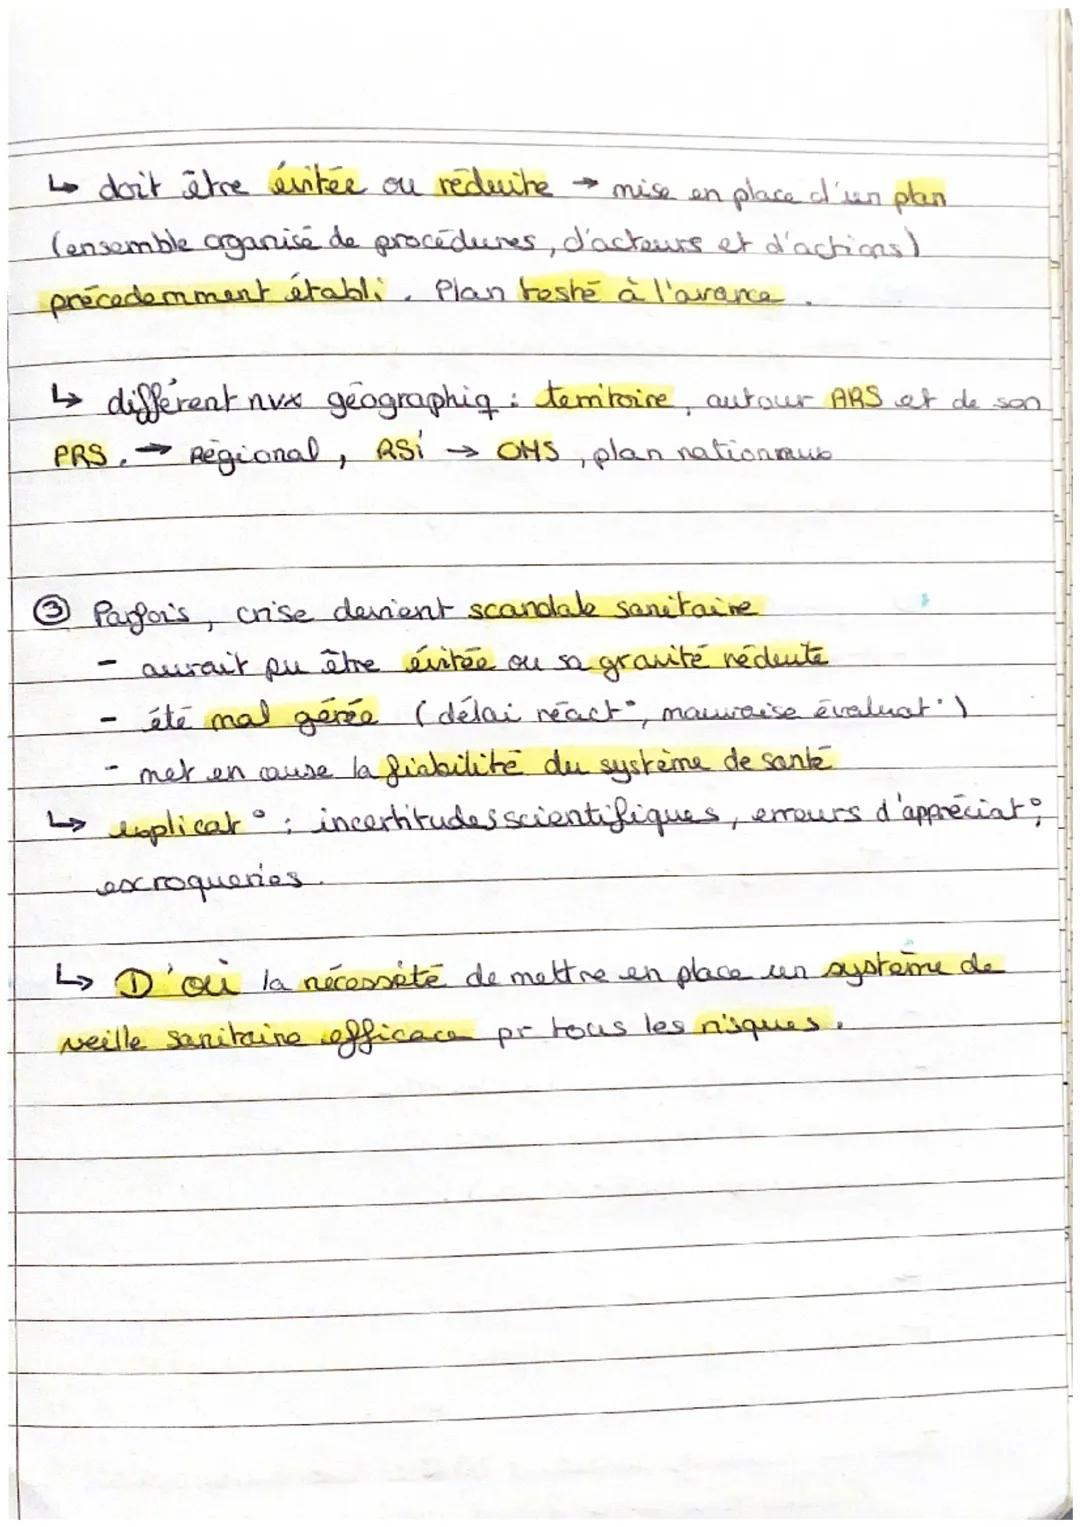 ↳ doit être évitée ou réduite → mise en place d'un plan
(ensemble organisé de procédures, d'acteurs et d'actions)
précedemment établi. Plan testé à l'avance.
↳ différent nvx géographiq : territoire, autour ARS et de son
PRS. → Régional, RSi → OMS, plan nationaux
③ Parfois, crise devient scandale sanitaire
- aurait pu être évitée ou sa gravité réduite
- été mal gérée (délai réact°, mauvaise évaluat°)
- met en cause la fiabilité du système de santé
↳ explicat° : incertitudes scientifiques, erreurs d'appréciat°,
escroqueries.
↳ D'où la nécessité de mettre en place un système de
veille sanitaire efficace pr tous les risques.